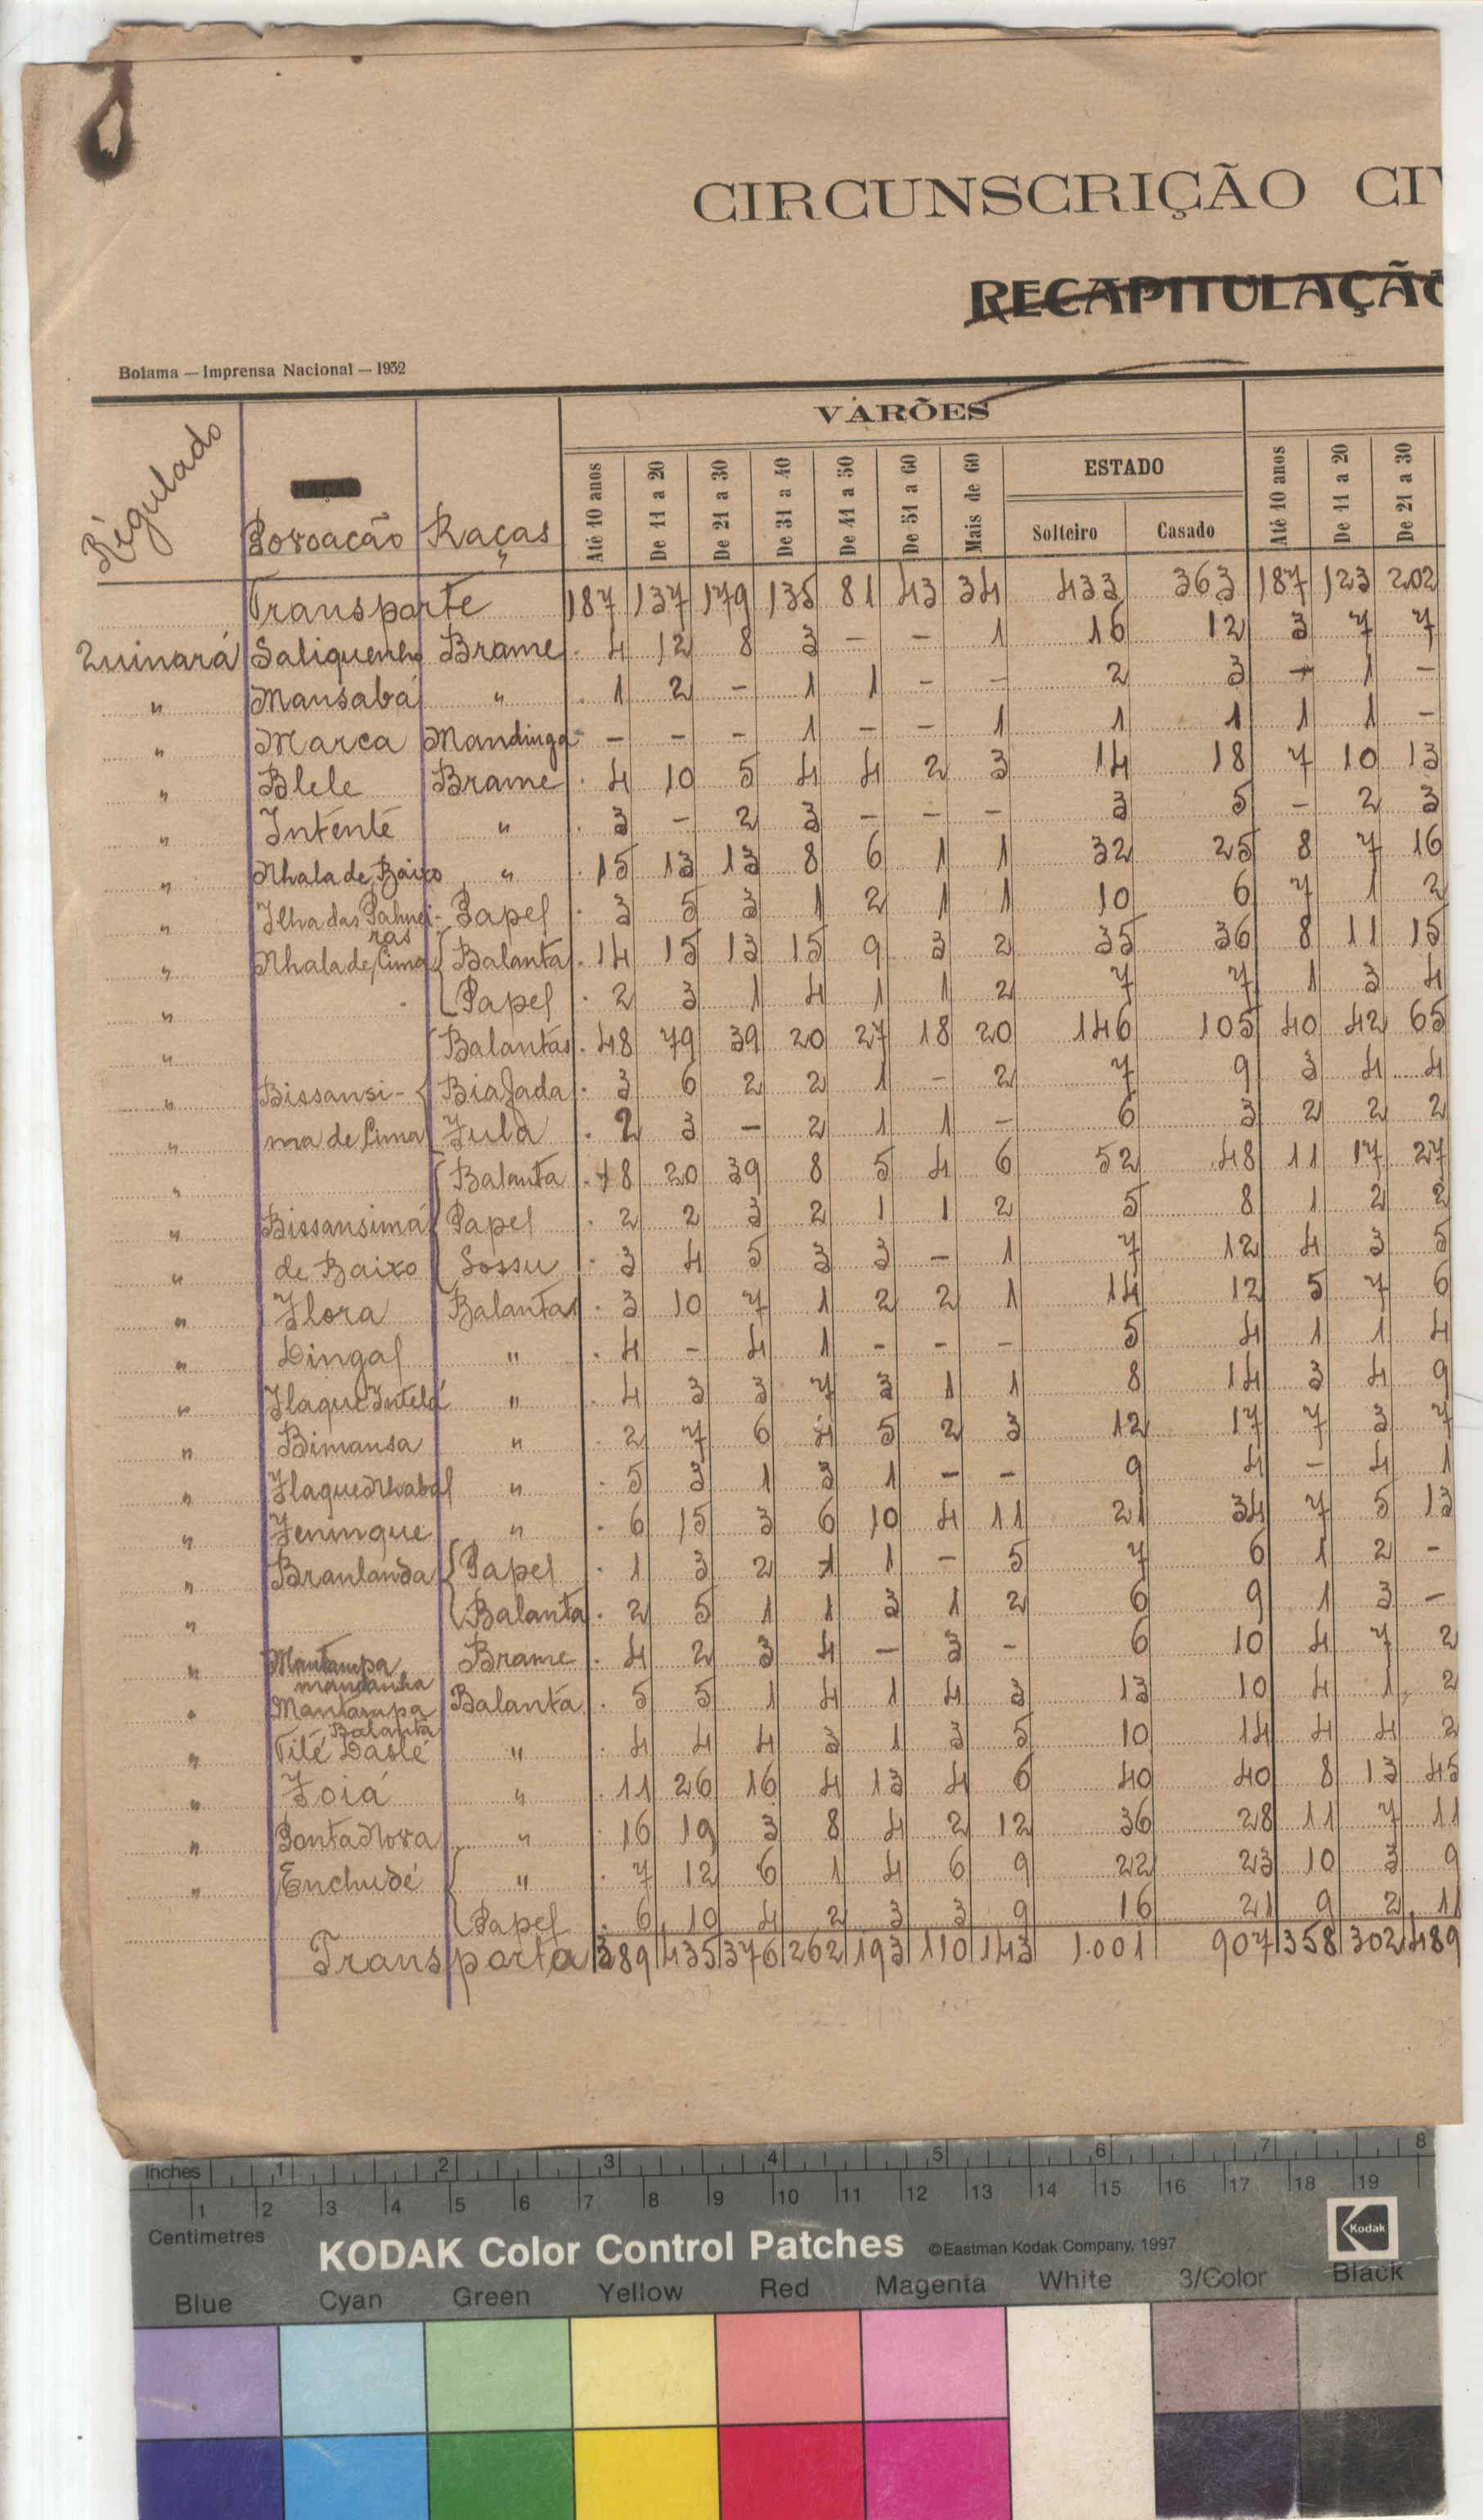 CIRCUNSCRIÇÃO CI
RECAPITULAÇÃO
Bolama — Imprensa Nacional — 1932
VARÕES
Régulado Povoação Raças Até 10 anos De 11 a 20 De 21 a 30 De 31 a 40 De 41 a 50 De 51 a 60 Mais de 60 ESTADO Até 10 anos De 11 a 20 De 21 a 30
Solteiro Casado
Transporte 187 137 179 135 81 43 34 433 363 187 123 202
Quinará Saliquenho Brame 4 12 8 3 — — 1 16 12 3 7 7
" Mansabá " 1 2 - 1 1 - - 2 3 - 1 -
" Marca Mandinga - - - 1 - - 1 1 1 1 1 -
" Blele Brame 4 10 5 4 4 2 3 14 18 7 10 13
" Intenté " 3 - 2 3 - - - 3 5 - 2 3
" Nhala de Baixo " 15 13 13 8 6 1 1 32 25 8 7 16
" Ilha das Palmei- Papel 3 5 3 1 2 1 1 10 6 7 1 2
ras
" Nhala de Cima Balanta 14 15 13 15 9 3 2 35 36 8 11 15
" Papel 2 3 1 4 1 1 2 7 7 1 3 4
" Balantas 48 79 39 20 27 18 20 146 105 40 42 65
" Bissansi- Biafada 3 6 2 2 1 - 2 7 9 3 4 4
" ma de Cima Fula 2 3 - 2 1 1 - 6 3 2 2 2
" Balanta 18 20 39 8 5 4 6 52 48 11 17 27
" Bissansimá Papel 2 2 3 2 1 1 2 5 8 1 2 2
" de Baixo Sossu 3 4 5 3 3 - 1 7 12 4 3 5
" Flora Balantas 3 10 7 1 2 2 1 14 12 5 7 6
" Dingal " 4 - 4 1 - - - 5 4 1 1 4
" Flaque Intelá " 4 3 3 7 3 1 1 8 14 3 4 9
" Bimansa " 2 7 6 4 5 2 3 12 17 7 3 7
" Flaque Nhabal " 5 3 1 3 1 - - 9 4 - 4 1
" Feninque " 6 15 3 6 10 4 11 21 34 7 5 13
" Branlanda Papel 1 3 2 1 1 - 5 7 6 1 2 -
" Balanta 2 5 1 1 3 1 2 6 9 1 3 -
" Mantampa Brame 4 2 3 4 - 3 - 6 10 4 7 2
mancanha
" Mantampa Balanta 5 5 1 4 1 4 3 13 10 4 1 2
Balanta
" Tilé Daslé " 4 4 4 3 1 3 5 10 14 4 4 2
" Foiá " 11 26 16 4 13 4 6 40 40 8 13 45
" Ponta Nova " 16 19 3 8 4 2 12 36 28 11 7 11
" Enchudé " 7 12 6 1 4 6 9 22 23 10 3 9
Papel 6 10 4 2 3 3 9 16 21 9 2 11
Transporta 389 435 376 262 193 110 143 1.001 907 358 302 489
Inches 1 2 3 4 5 6 7 8
1 2 3 4 5 6 7 8 9 10 11 12 13 14 15 16 17 18 19
Centimetres
KODAK Color Control Patches ©Eastman Kodak Company, 1997 Kodak
Blue Cyan Green Yellow Red Magenta White 3/Color Black